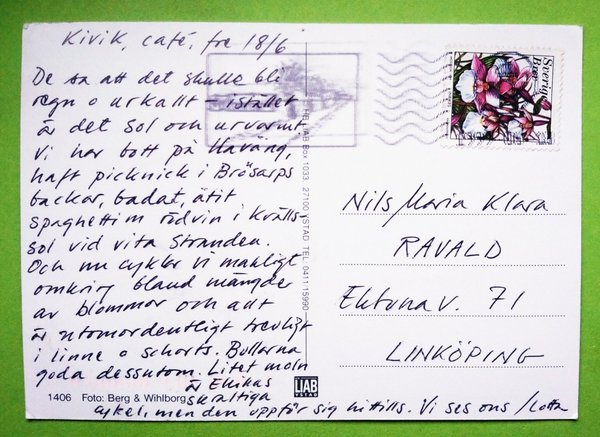 Kivik, café, fre 18/6
De sa att det skulle bli
regn o urkallt - istället
är det sol och urvarmt
Vi har bott på Haväng,
haft picknick i Brösarps
backar, badat, ätit
spaghetti m rödvin i kvälls
sol vid vita stranden.
Och nu cyklar vi makligt
omkring bland mängder
av blommor och allt
är utomordentligt trevligt
i linne o shorts. Bullarna
goda dessutom. Litet moln
är Ehikas
skraltiga
cykel, men den uppför sig hittills. Vi ses ons /Lotta
Nils/Maria Klara
RAVALD
Ektunav. 71
LINKÖPING
Sverige
Brev
TEL LIAB Box 1033 27100 YSTAD TEL 0411-15990
LIAB
YSTAD
1406 Foto: Berg & Wihlborg